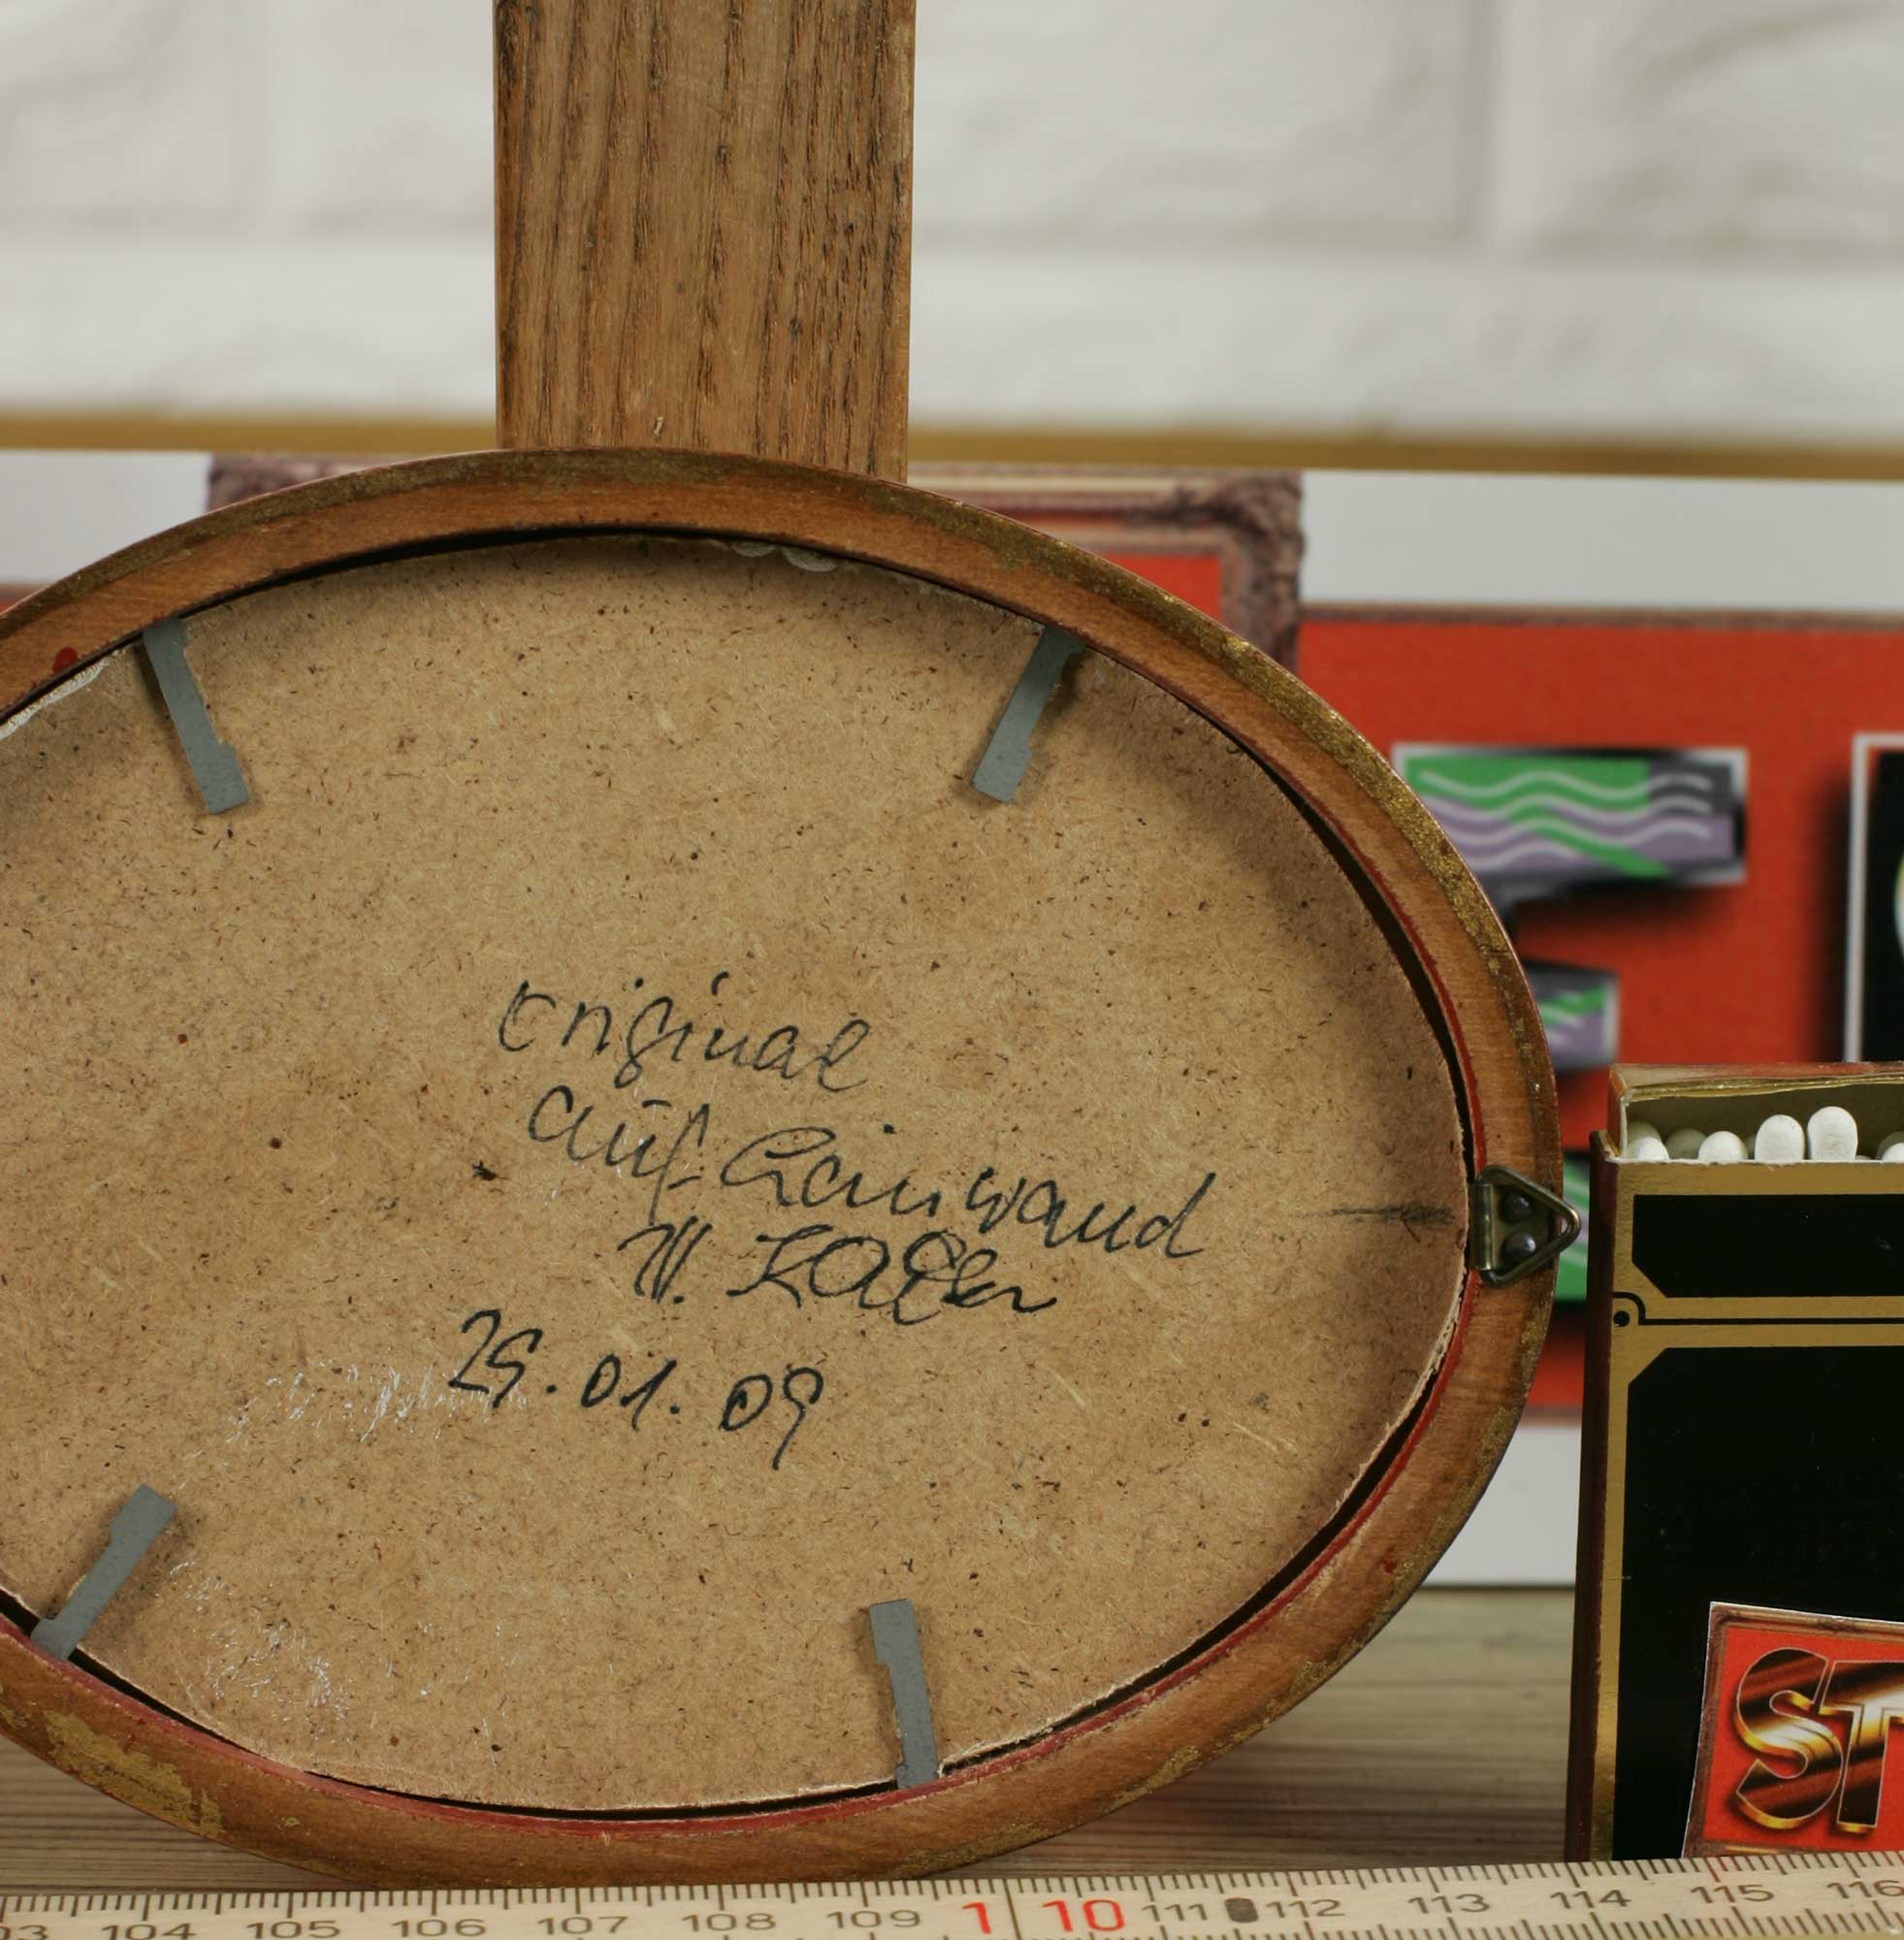 Original
auf Leinwand
25.01.09
ST
03 104 105 106 107 108 109 1 10 111 112 113 114 115 116